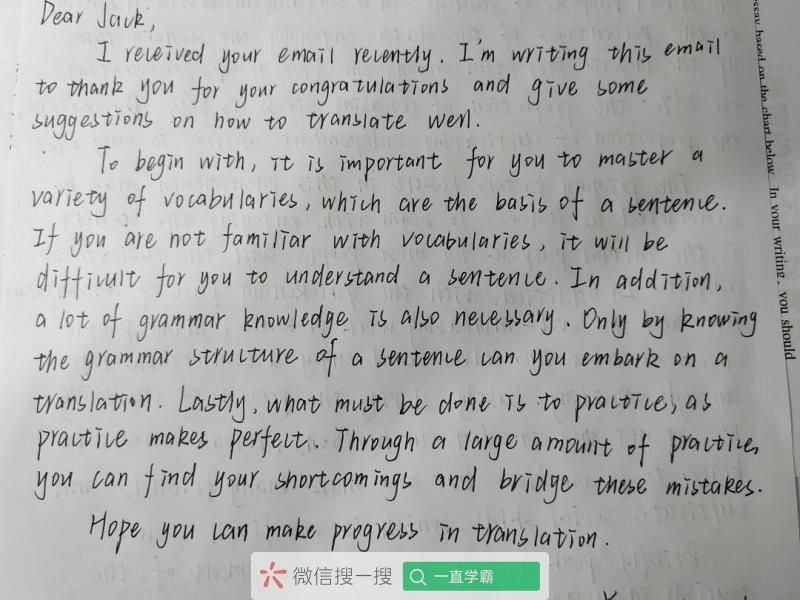 Dear Jack,
I received your email recently. I'm writing this email
to thank you for your congratulations and give some
suggestions on how to translate well.
To begin with, it is important for you to master a
variety of vocabularies, which are the basis of a sentence.
If you are not familiar with vocabularies, it will be
difficult for you to understand a sentence. In addition,
a lot of grammar knowledge is also necessary. Only by knowing
the grammar structure of a sentence can you embark on a
translation. Lastly, what must be done is to practice, as
practice makes perfect. Through a large amount of practice,
you can find your shortcomings and bridge these mistakes.
Hope you can make progress in translation.
微信搜一搜
一直学霸
essay based on the chart below. In your writing, you should